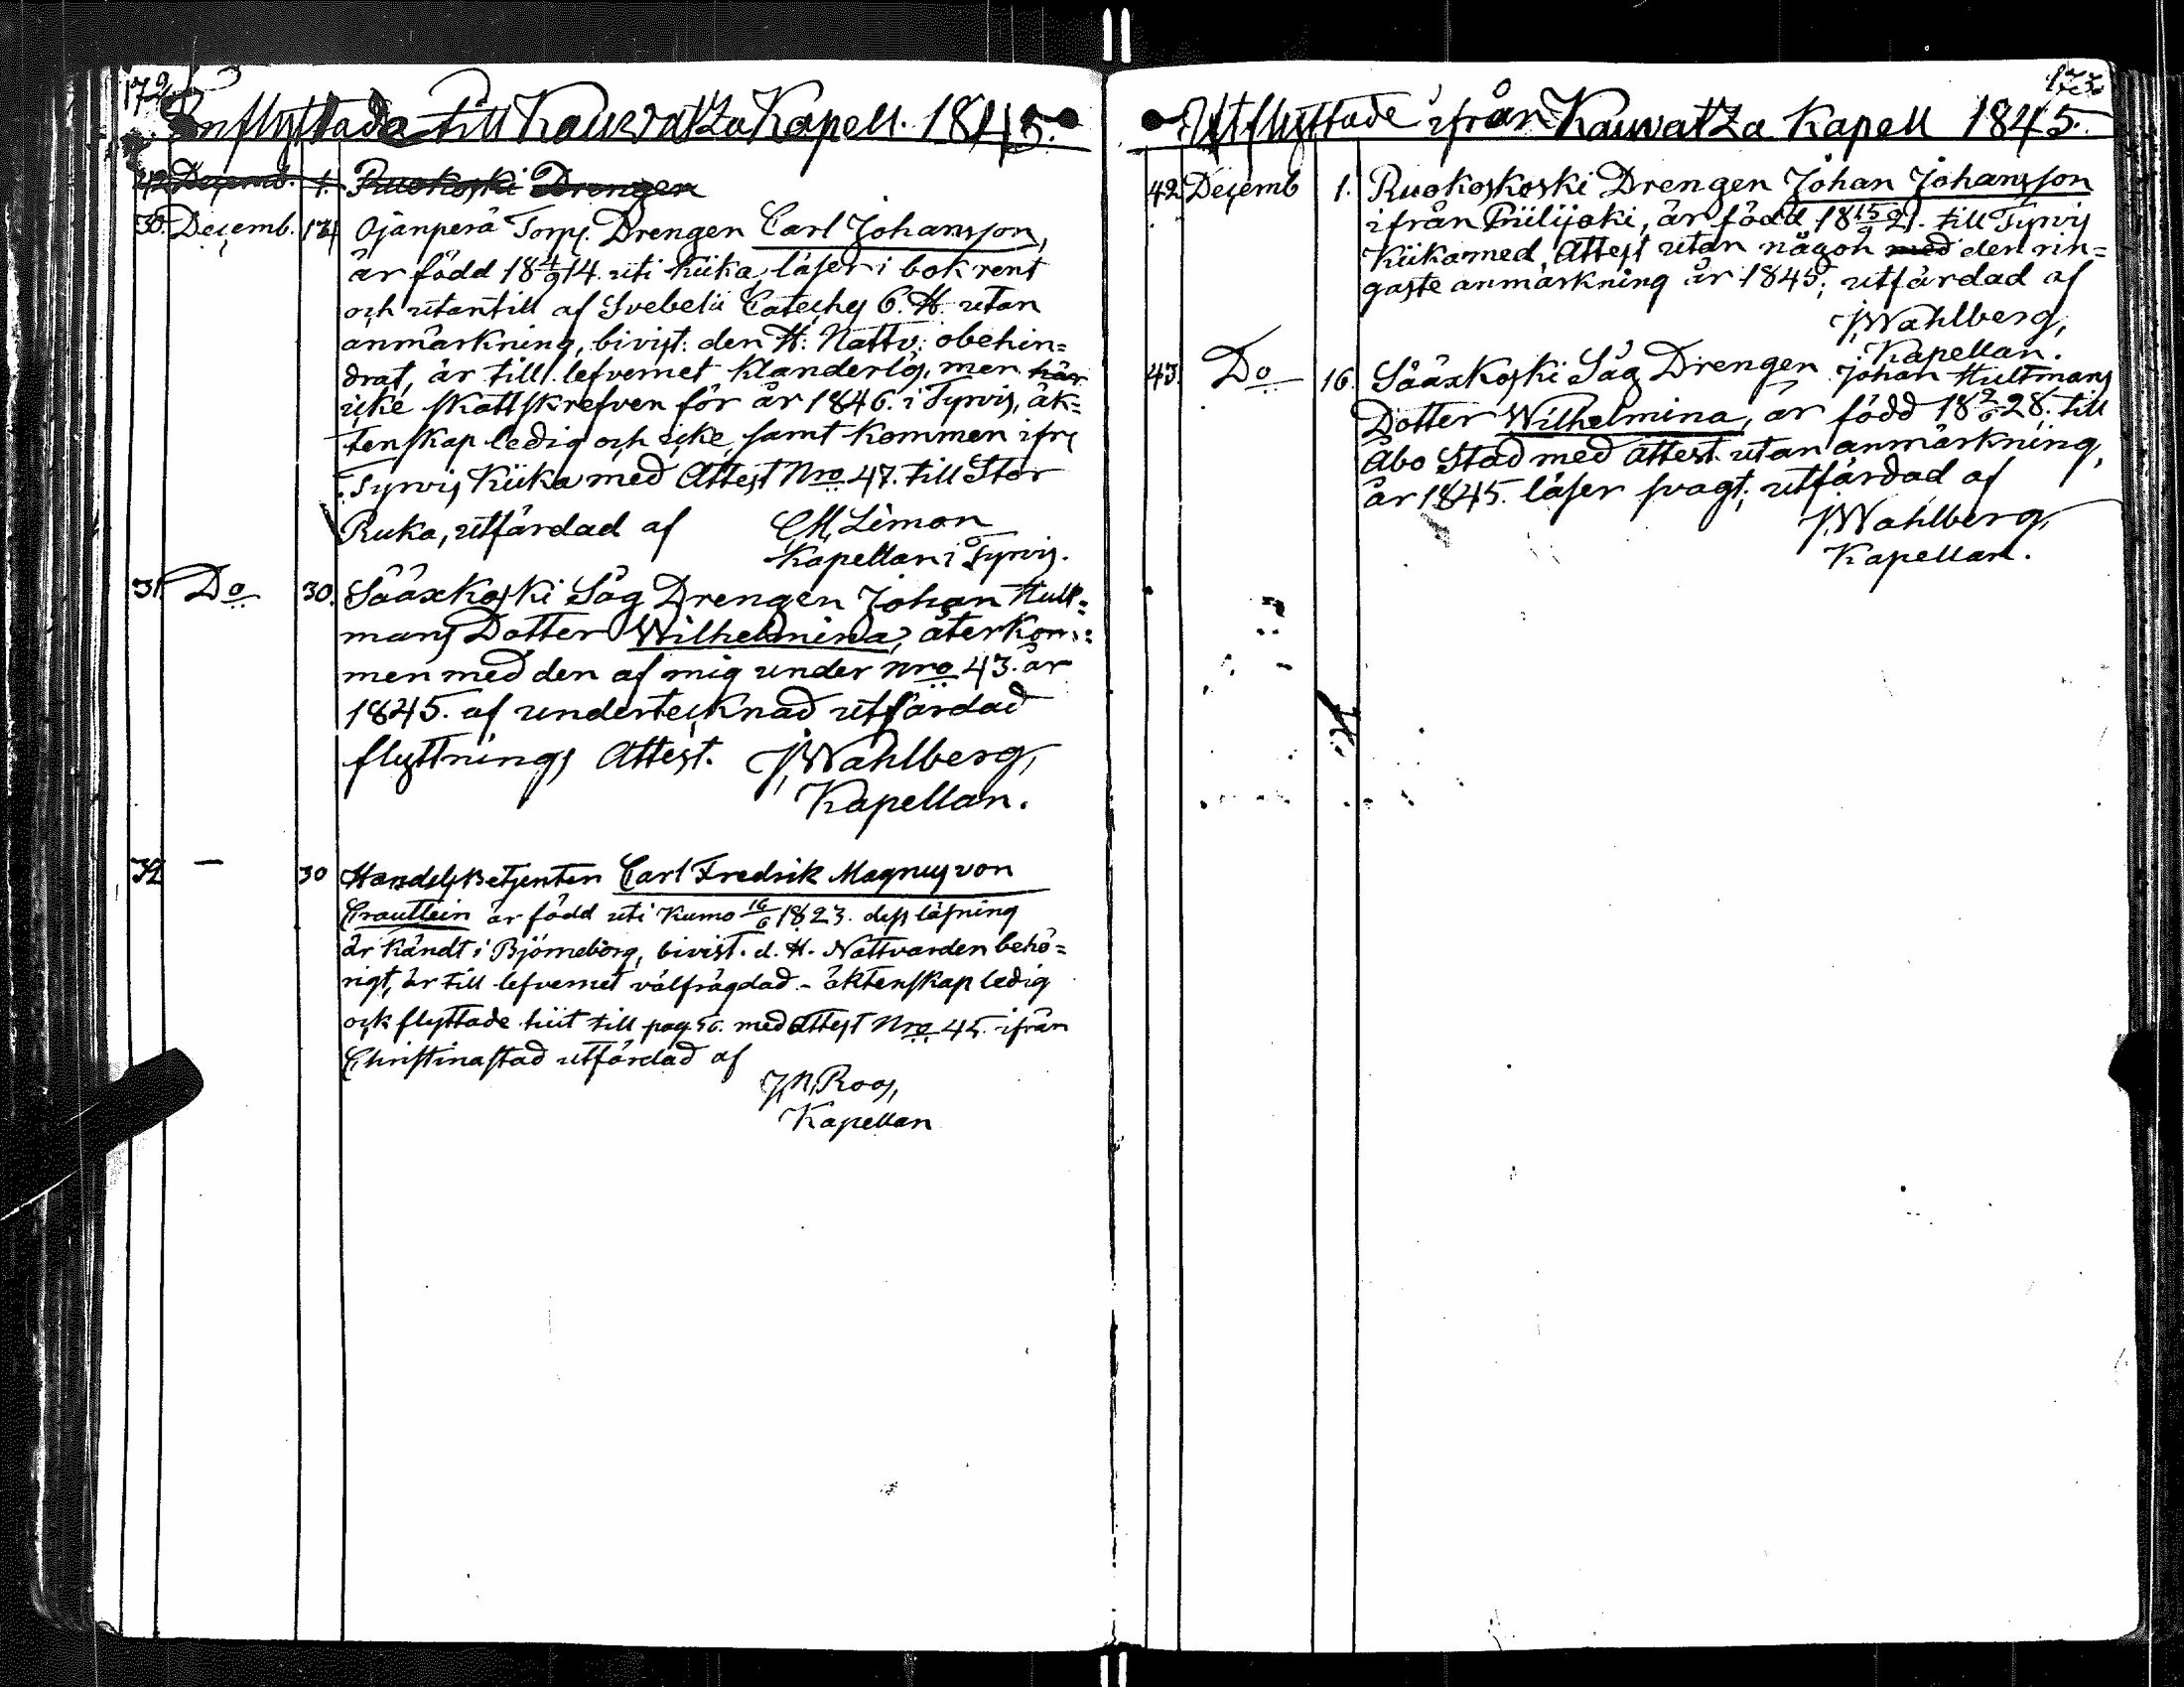 172
Inflyttade till Kauvatza Kapell. 1845.
42 Decemb. 1. Ruokoski Drengen
30. Decemb. Ojänperä Torps. Drengen Carl Johansson,
är född 18 4/9 14. uti Kiika, läser i bok rent
och utantill af Svebelii Cateches 6. H. utan
anmärkning, bivist: den H: Nattv: obehin=
drat, är till lefvernet klanderlös, men här
icke skattskrefven för år 1846. i Tyrvis, äk=
tenskap ledig och icke, samt kommen ifrn
Tyrvis Kiika med Attest Nro 47. till Stor
Ruka, utfärdad af CM, Limon
Kapellan i Tyrvis.
31. Do 30. Sääxkoski Såg Drengen Johan Hult=
mans Dotter Wilhelmina, återkom=
men med den af mig under Nro 43. år
1845. af undertecknad utfärdad
flyttnings Attest. J, Wahlberg,
Kapellan.
32 — 30 Handels Betjenten Carl Fredrik Magnus von
Crautlein är född uti Kumo 16/6 1823. dess läsning
är kändt i Björneborg, bivist. d. H. Nattvarden behö=
rigt, är till lefvernet välfrägdad - äktenskap ledig
och flyttade hiit till pag. 56. med Attest Nro 45. ifrån
Christinastad utfärdad af
J, N, Roos,
Kapellan
173
Utflyttade ifrån Kauvatza Kapell 1845.
42 Decemb 1. Ruokoskoski Drengen Johan Johansson
ifrån Piilijoki, är född 18 15/9 21. till Tyrvis
Kiika med, Attest utan någon med den rin=
gaste anmärkning år 1845; utfärdad af
J, Wahlberg,
Kapellan.
43. Do 16. Sääxkoski Såg Drengen Johan Hultmans
Dotter Wilhelmina, är född 18 28. till
Åbo Stad med attest utan anmärkning,
år 1845. läser svagt; utfärdad af
J, Wahlberg,
Kapellan.